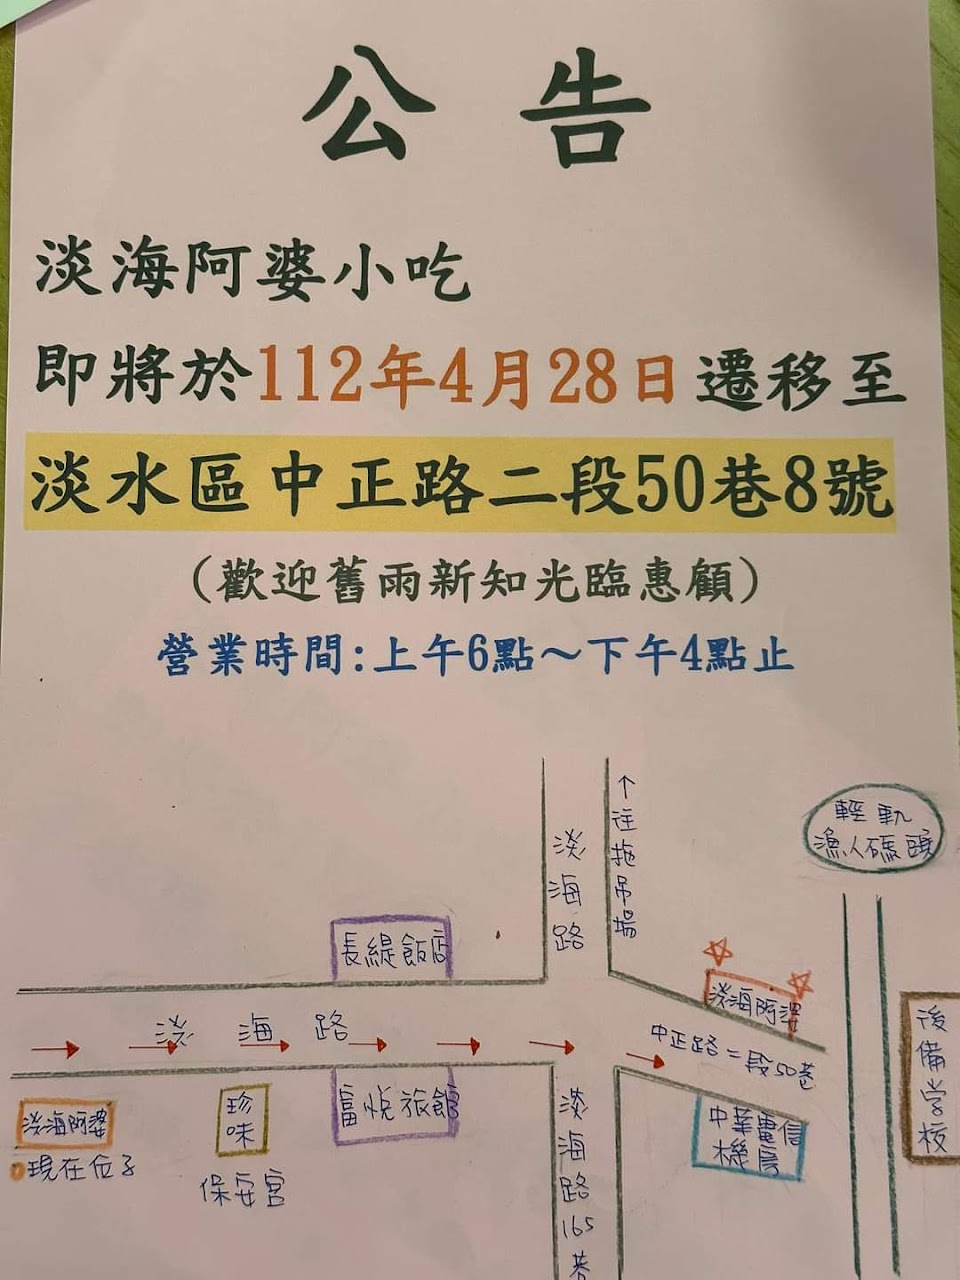 公告
淡海阿婆小吃
即將於112年4月28日遷移至
淡水區中正路二段50巷8號
(歡迎舊雨新知光臨惠顧)
營業時間:上午6點～下午4點止
↑往拖吊場
淡海路
輕軌
漁人碼頭
長緹飯店
淡海阿婆
淡海路
中正路二段50巷
後備学校
富悦旅館
淡海阿婆
現在位子
珍味
保安宮
淡海路165巷
中華電信
機房